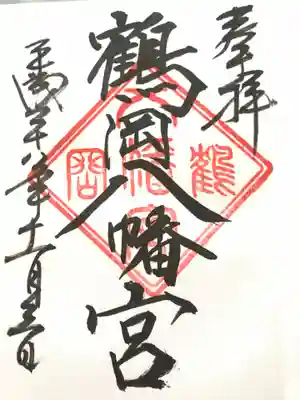 奉拝
鶴岡八幡宮
平成二十八年十一月三日
鶴
八幡宮
岡